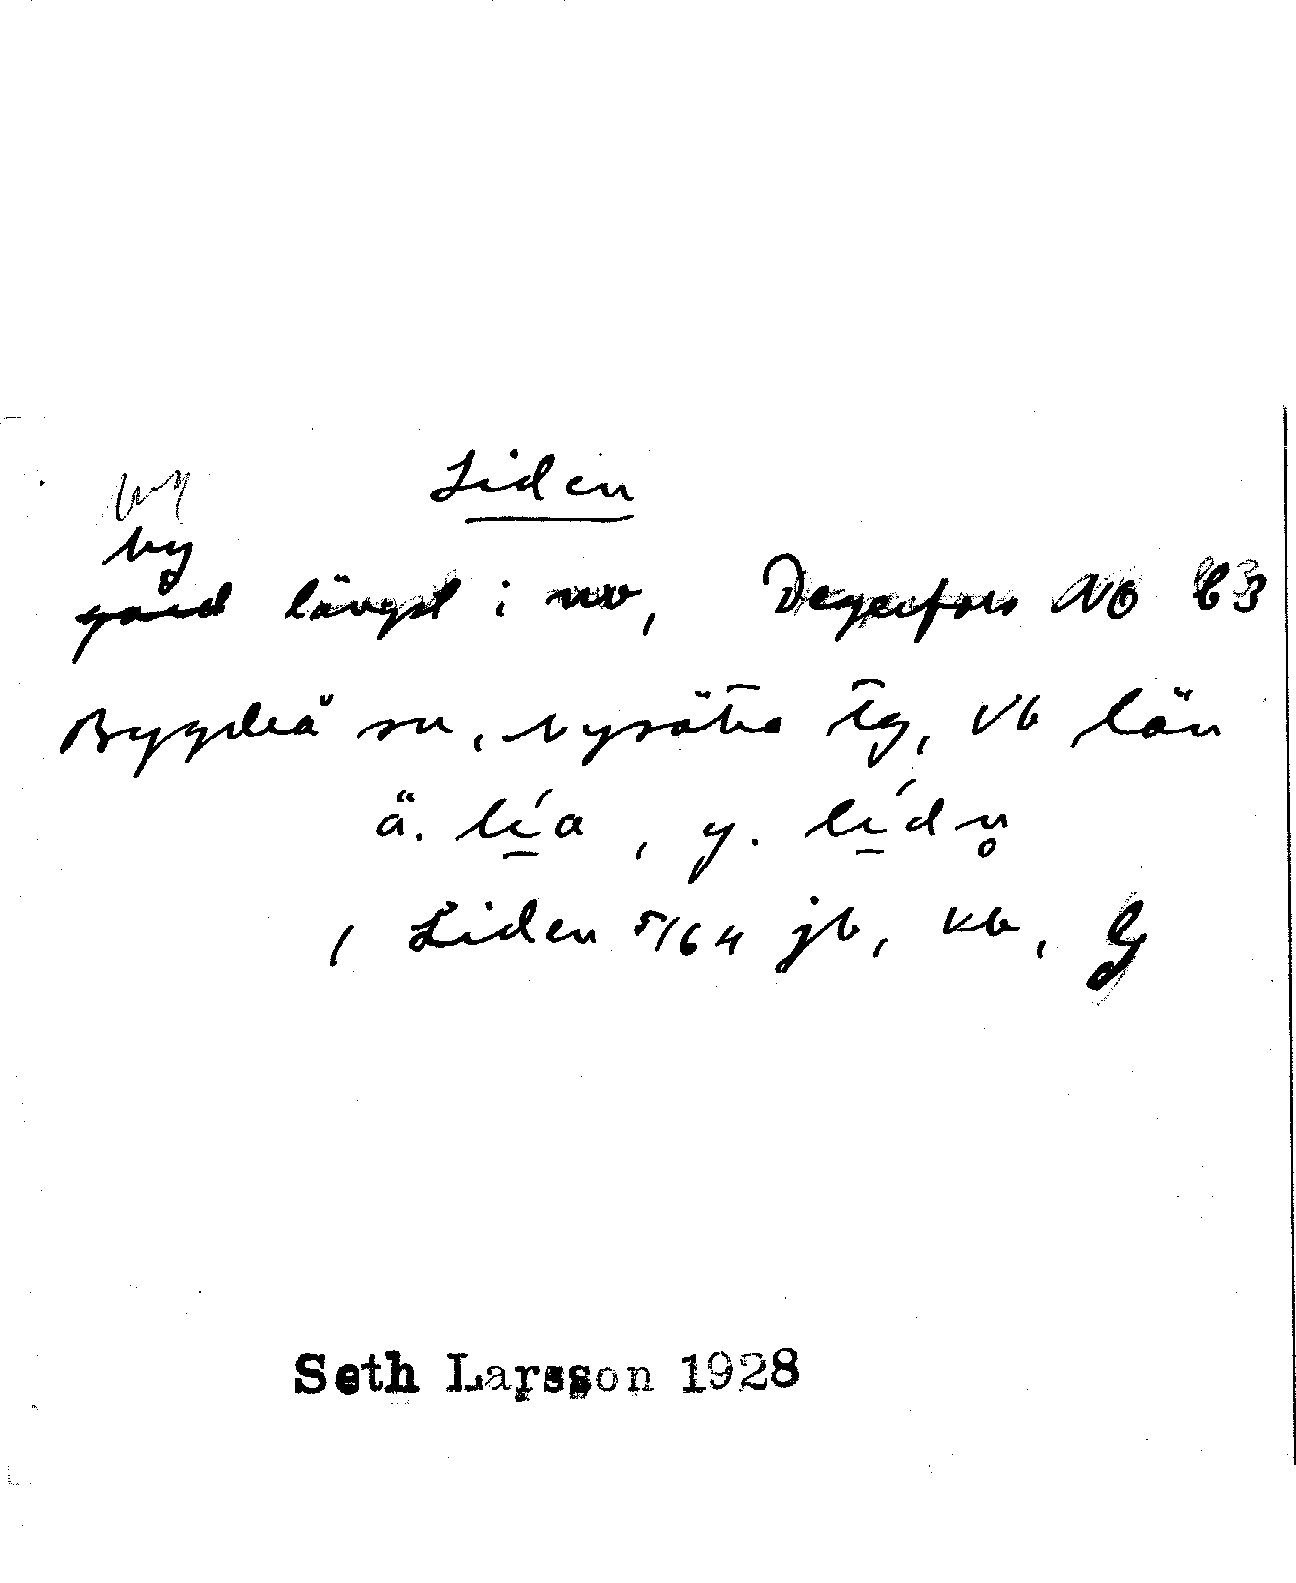 Liden
by
by
gård längst i nv, Degerfors NO C3
Bygdeå sn, Nysätra tg, Vb län
ä. lí̱a, y. lí̱dn̥
, Liden 5/64 jb, kb, G
Seth Larsson 1928